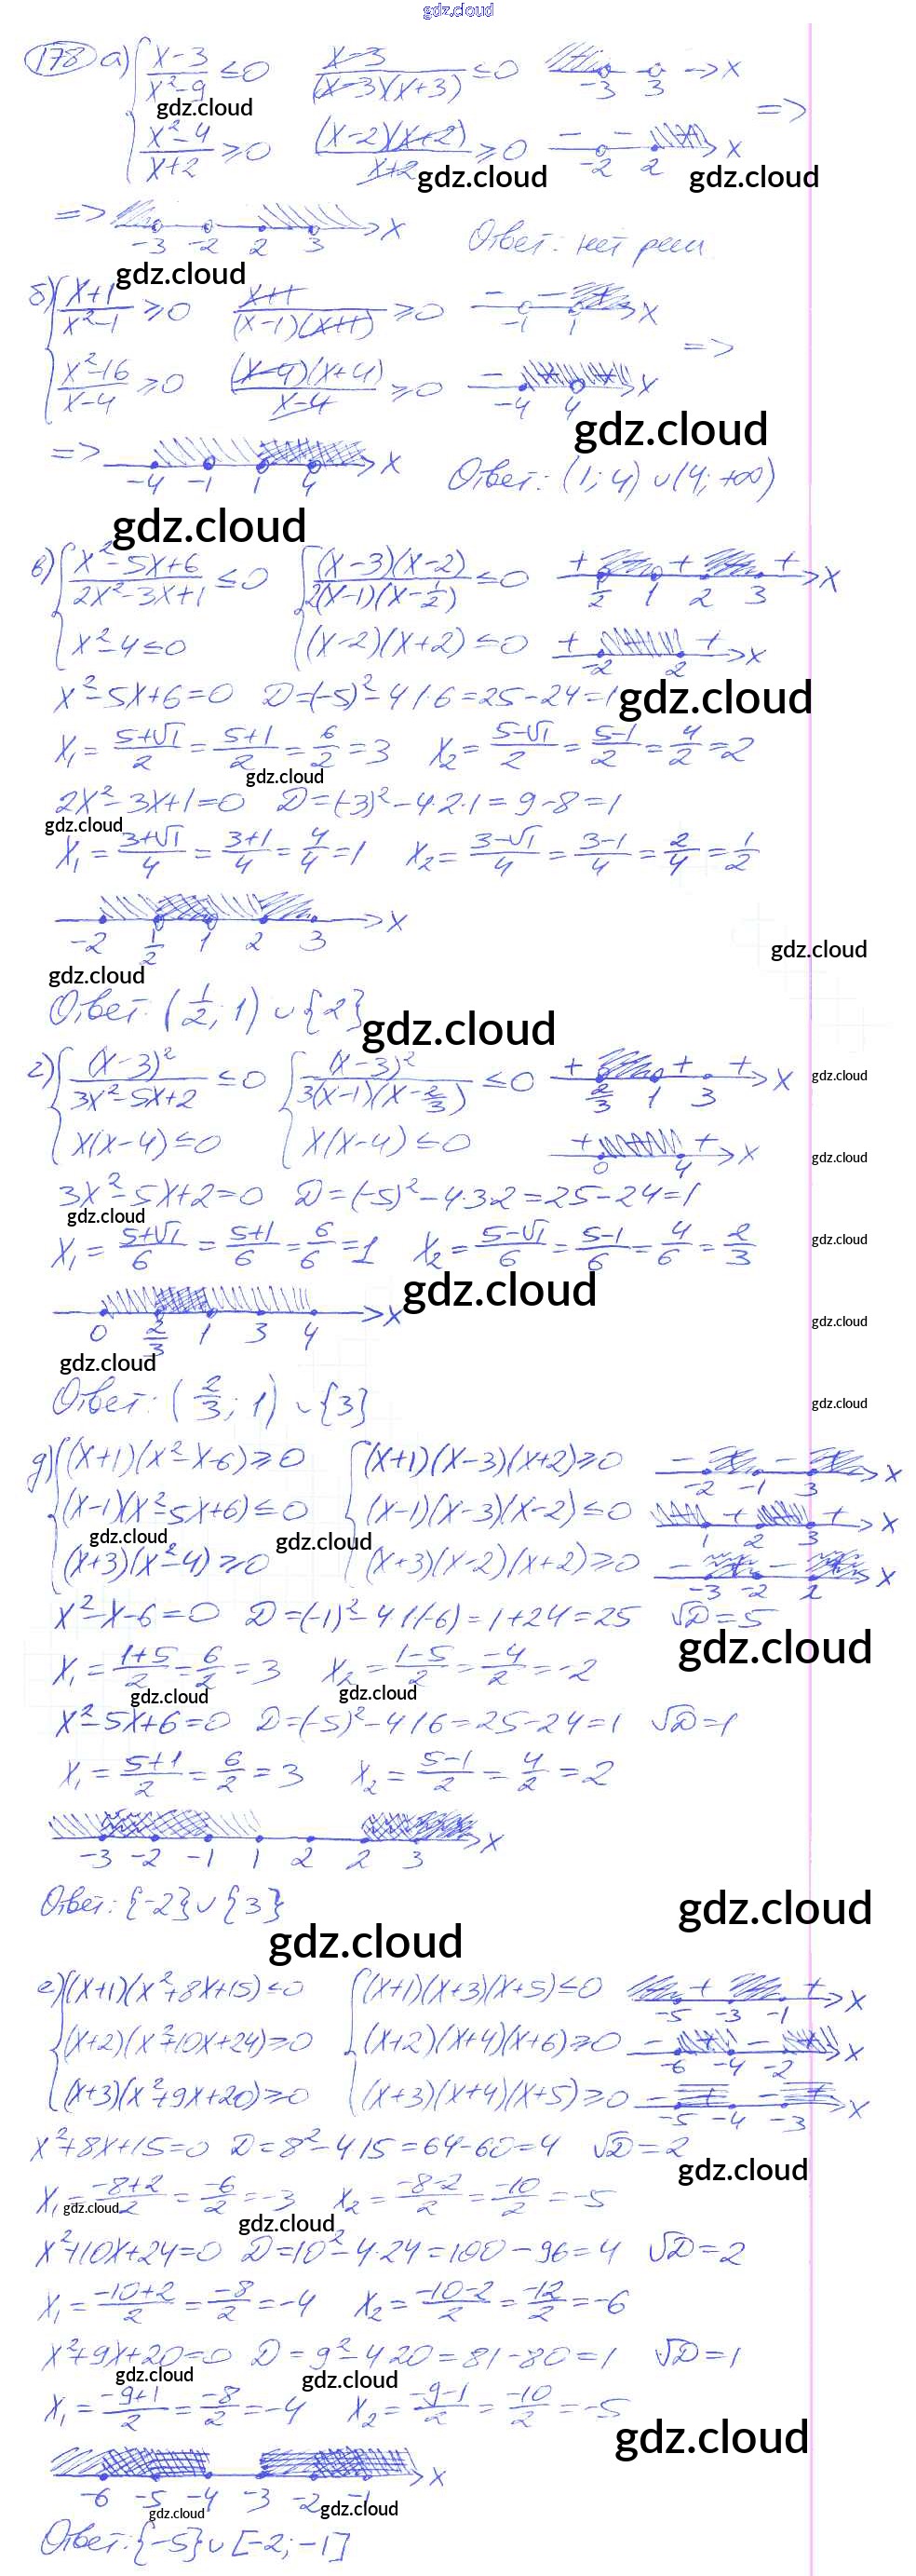 gdz.cloud
178 а) { (x-3)/(x²-9) ≤ 0   (x-3)/((x-3)(x+3)) ≤ 0   -3 3 → x
gdz.cloud
(x²-4)/(x+2) ≥ 0   ((x-2)(x+2))/(x+2) ≥ 0   - - + -2 2 x =>
gdz.cloud gdz.cloud
=> -3 -2 2 3 x   Ответ: нет реш.
gdz.cloud
б) { (x+1)/(x²-1) ≥ 0   (x+1)/((x-1)(x+1)) ≥ 0   - - + -1 1 x
(x²-16)/(x-4) ≥ 0   ((x-4)(x+4))/(x-4) ≥ 0   - + + -4 4 x =>
gdz.cloud
=> -4 -1 1 4 x   Ответ: (1; 4) ∪ (4; +∞)
gdz.cloud
в) { (x²-5x+6)/(2x²-3x+1) ≤ 0   { ((x-3)(x-2))/(2(x-1)(x-1/2)) ≤ 0   + + + 1/2 1 2 3 x
x²-4 ≤ 0   (x-2)(x+2) ≤ 0   + + -2 2 x
x²-5x+6=0   D=(-5)²-4·1·6=25-24=1
gdz.cloud
x₁ = (5+√1)/2 = (5+1)/2 = 6/2 = 3   x₂ = (5-√1)/2 = (5-1)/2 = 4/2 = 2
gdz.cloud
2x²-3x+1=0   D=(-3)²-4·2·1=9-8=1
gdz.cloud
x₁ = (3+√1)/4 = (3+1)/4 = 4/4 = 1   x₂ = (3-√1)/4 = (3-1)/4 = 2/4 = 1/2
-2 1/2 1 2 3 x
gdz.cloud
gdz.cloud
Ответ: (1/2; 1) ∪ {2}
gdz.cloud
г) { (x-3)²/(3x²-5x+2) ≤ 0   { (x-3)²/(3(x-1)(x-2/3)) ≤ 0   + + + 2/3 1 3 x
gdz.cloud
x(x-4) ≤ 0   x(x-4) ≤ 0   + + 0 4 x
gdz.cloud
3x²-5x+2=0   D=(-5)²-4·3·2=25-24=1
gdz.cloud
x₁ = (5+√1)/6 = (5+1)/6 = 6/6 = 1   x₂ = (5-√1)/6 = (5-1)/6 = 4/6 = 2/3
gdz.cloud
gdz.cloud
0 2/3 1 3 4 x
gdz.cloud
gdz.cloud
Ответ: (2/3; 1) ∪ {3}
gdz.cloud
д) { (x+1)(x²-x-6) ≥ 0   { (x+1)(x-3)(x+2) ≥ 0   - + - + -2 -1 3 x
(x-1)(x²-5x+6) ≤ 0   (x-1)(x-3)(x-2) ≤ 0   + + 1 2 3 x
gdz.cloud gdz.cloud
(x+3)(x²-4) ≥ 0   (x+3)(x-2)(x+2) ≥ 0   - + - + -3 -2 2 x
x²-x-6=0   D=(-1)²-4·1·(-6)=1+24=25   √D=5
gdz.cloud
x₁ = (1+5)/2 = 6/2 = 3   x₂ = (1-5)/2 = -4/2 = -2
gdz.cloud gdz.cloud
x²-5x+6=0   D=(-5)²-4·1·6=25-24=1   √D=1
x₁ = (5+1)/2 = 6/2 = 3   x₂ = (5-1)/2 = 4/2 = 2
-3 -2 -1 1 2 2 3 x
Ответ: {-2} ∪ {3}
gdz.cloud
gdz.cloud
е) { (x+1)(x²+8x+15) ≤ 0   { (x+1)(x+3)(x+5) ≤ 0   + + -5 -3 -1 x
(x+2)(x²+10x+24) ≥ 0   (x+2)(x+4)(x+6) ≥ 0   - + - + -6 -4 -2 x
(x+3)(x²+9x+20) ≥ 0   (x+3)(x+4)(x+5) ≥ 0   - + - + -5 -4 -3 x
x²+8x+15=0   D=8²-4·15=64-60=4   √D=2
gdz.cloud
x₁ = (-8+2)/2 = -6/2 = -3   x₂ = (-8-2)/2 = -10/2 = -5
gdz.cloud
gdz.cloud
x²+10x+24=0   D=10²-4·24=100-96=4   √D=2
x₁ = (-10+2)/2 = -8/2 = -4   x₂ = (-10-2)/2 = -12/2 = -6
x²+9x+20=0   D=9²-4·20=81-80=1   √D=1
gdz.cloud gdz.cloud
x₁ = (-9+1)/2 = -8/2 = -4   x₂ = (-9-1)/2 = -10/2 = -5
gdz.cloud
-6 -5 -4 -3 -2 -1 x
gdz.cloud gdz.cloud
Ответ: {-5} ∪ [-2; -1]